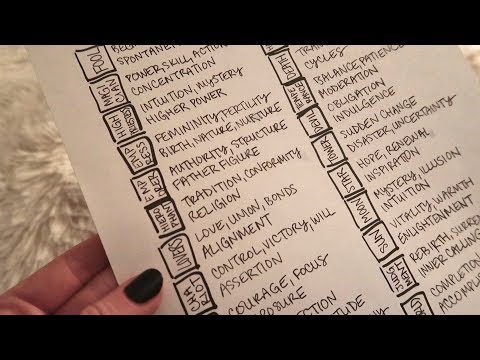 FOOL
SPONTANE
MAGI
CIAN
POWER, SKILL, ACTION
CONCENTRATION
HIGH
PRIESTESS
INTUITION, MYSTERY
HIGHER POWER
EMP
RESS
FEMININITY, FERTILITY
BIRTH, NATURE, NURTURE
EMP
EROR
AUTHORITY, STRUCTURE
FATHER FIGURE
HIERO
PHANT
TRADITION, CONFORMITY
RELIGION
LOVERS
LOVE, UNION, BONDS
ALIGNMENT
CHA
RIOT
CONTROL, VICTORY, WILL
ASSERTION
COURAGE, FOCUS
POSURE
CTION
TUDE
DEATH
TRAN
CYCLES
TEMPE
RANCE
BALANCE, PATIENCE
MODERATION
DEVIL
OBLIGATION
INDULGENCE
TOWER
SUDDEN CHANGE
DISASTER, UNCERTAINTY
STAR
HOPE, RENEWAL
INSPIRATION
MOON
MYSTERY, ILLUSION
INTUITION
SUN
VITALITY, WARMTH
ENLIGHTENMENT
JUDG
MENT
REBIRTH, SURREN
INNER CALLING
RLD
COMPLETION
ACCOMPL